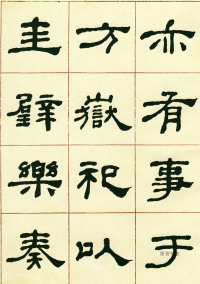 亦有事于
方嶽祀以
圭璧樂奏